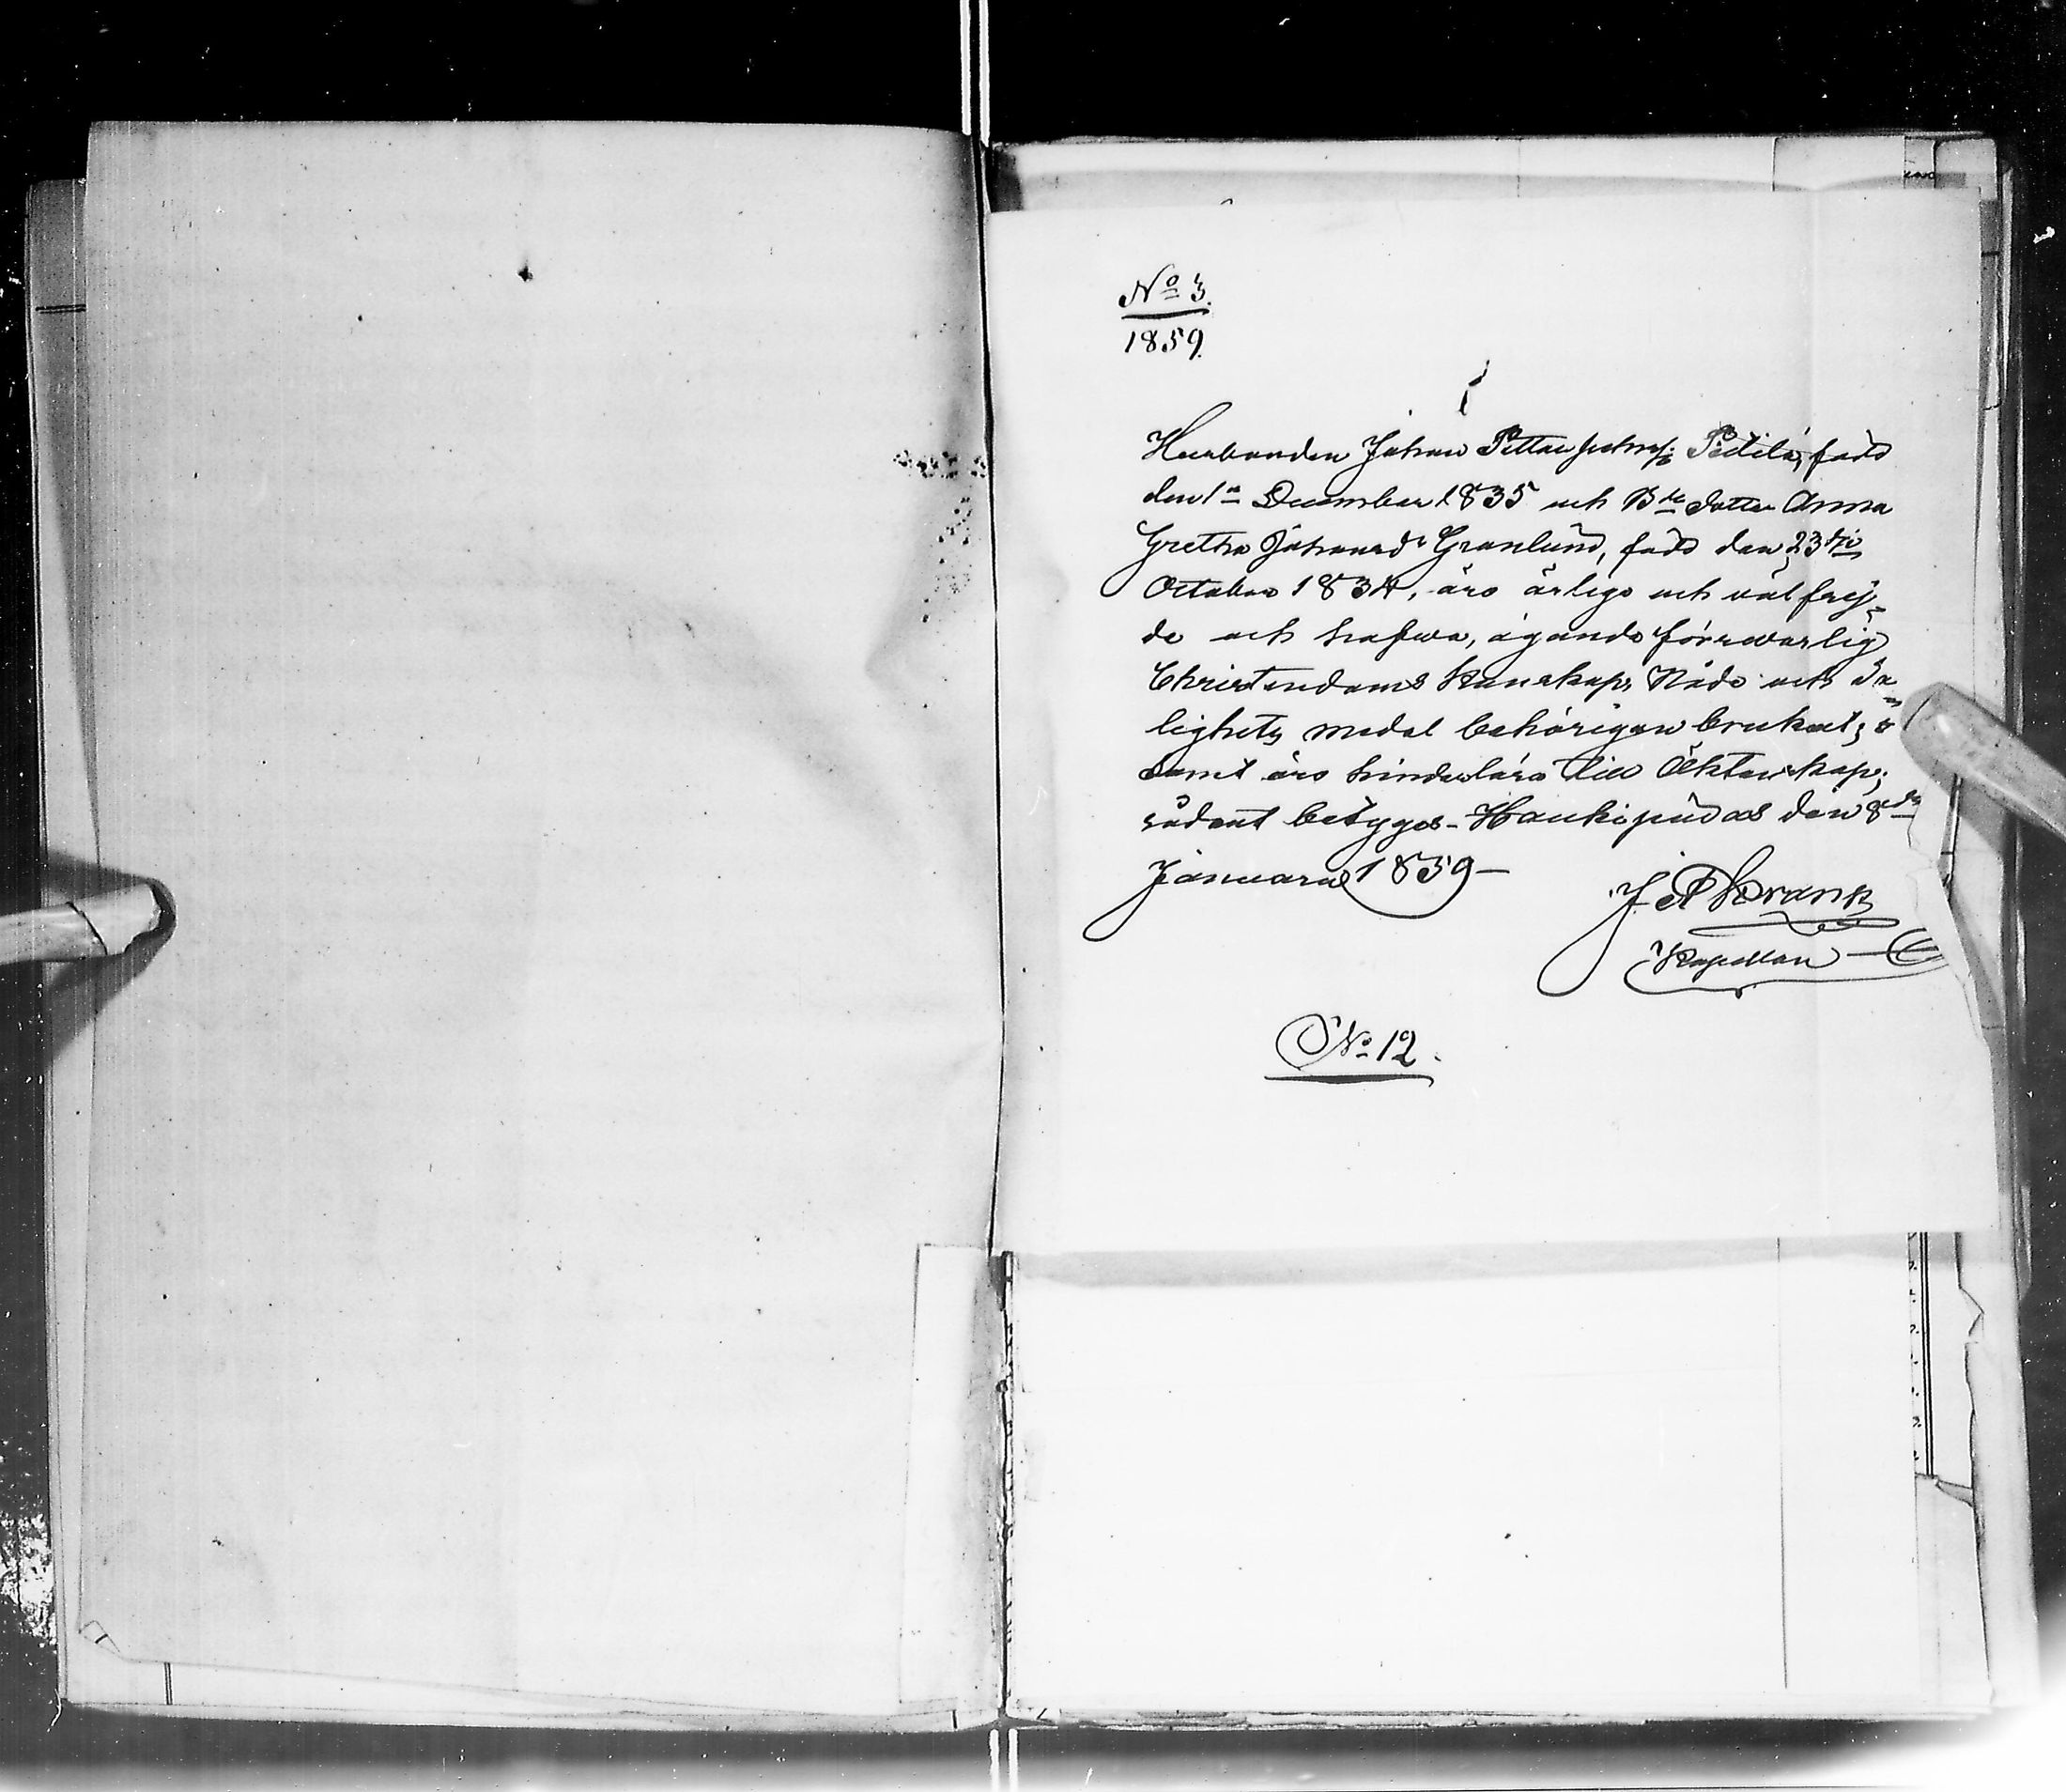 No 3.
1859.
Husbonden Johan Petter Johansso: Pietilä, född
den 1a December 1835 och Bde dotter Anna
Gretha Johansdr Granlund, född den 23dje
October 1834, äro ärliga och väl frej=
de och hafwa, ägande förswarlig
Christendoms Kunskap, Nåde och Sa=
lighets medel behörigen brukat;
samt äro hinderlösa till Äktenskap;
sådant betygas. Haukipudas den 8de
Januarii 1859 —
J A Krank
Kapellan
No 12.